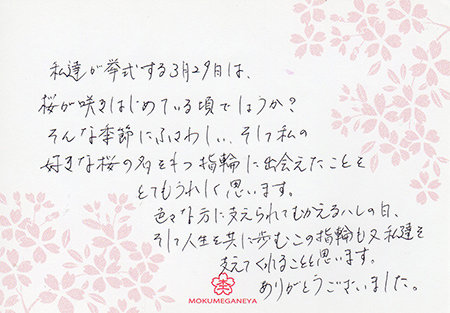 私達が挙式する3月29日は、
桜が咲きはじめている頃でしょうか？
そんな季節にふさわしい、そして私の
好きな桜の名をもつ指輪に出会えたことを
とてもうれしく思います。
色々な方に支えられてむかえるハレの日、
そして人生を共に歩むこの指輪も又私達を
支えてくれることと思います。
ありがとうございました。
MOKUMEGANEYA